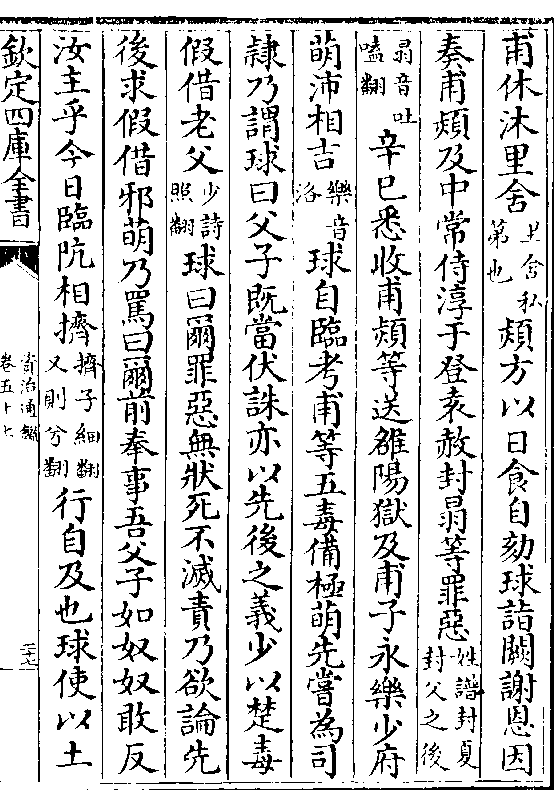 甫休沐里舍里舍私第也熲方以日食自劾球詣闕謝恩因
奏甫熲及中常侍淳于登袁赦封㬱等罪惡姓譜封夏封父之後
㬱音吐嗑翻辛巳悉收甫熲等送雒陽獄及甫子永樂少府
萌沛相吉樂音洛球自臨考甫等五毒備極萌先嘗為司
隸乃謂球曰父子既當伏誅亦以先後之義少以楚毒
假借老父少詩照翻球曰爾罪惡無狀死不滅責乃欲論先
後求假借邪萌乃罵曰爾前奉事吾父子如奴奴敢反
汝主乎今日臨阬相擠擠子細翻又則兮翻行自及也球使以土
欽定四庫全書
資治通鑑
卷五十七
二十七